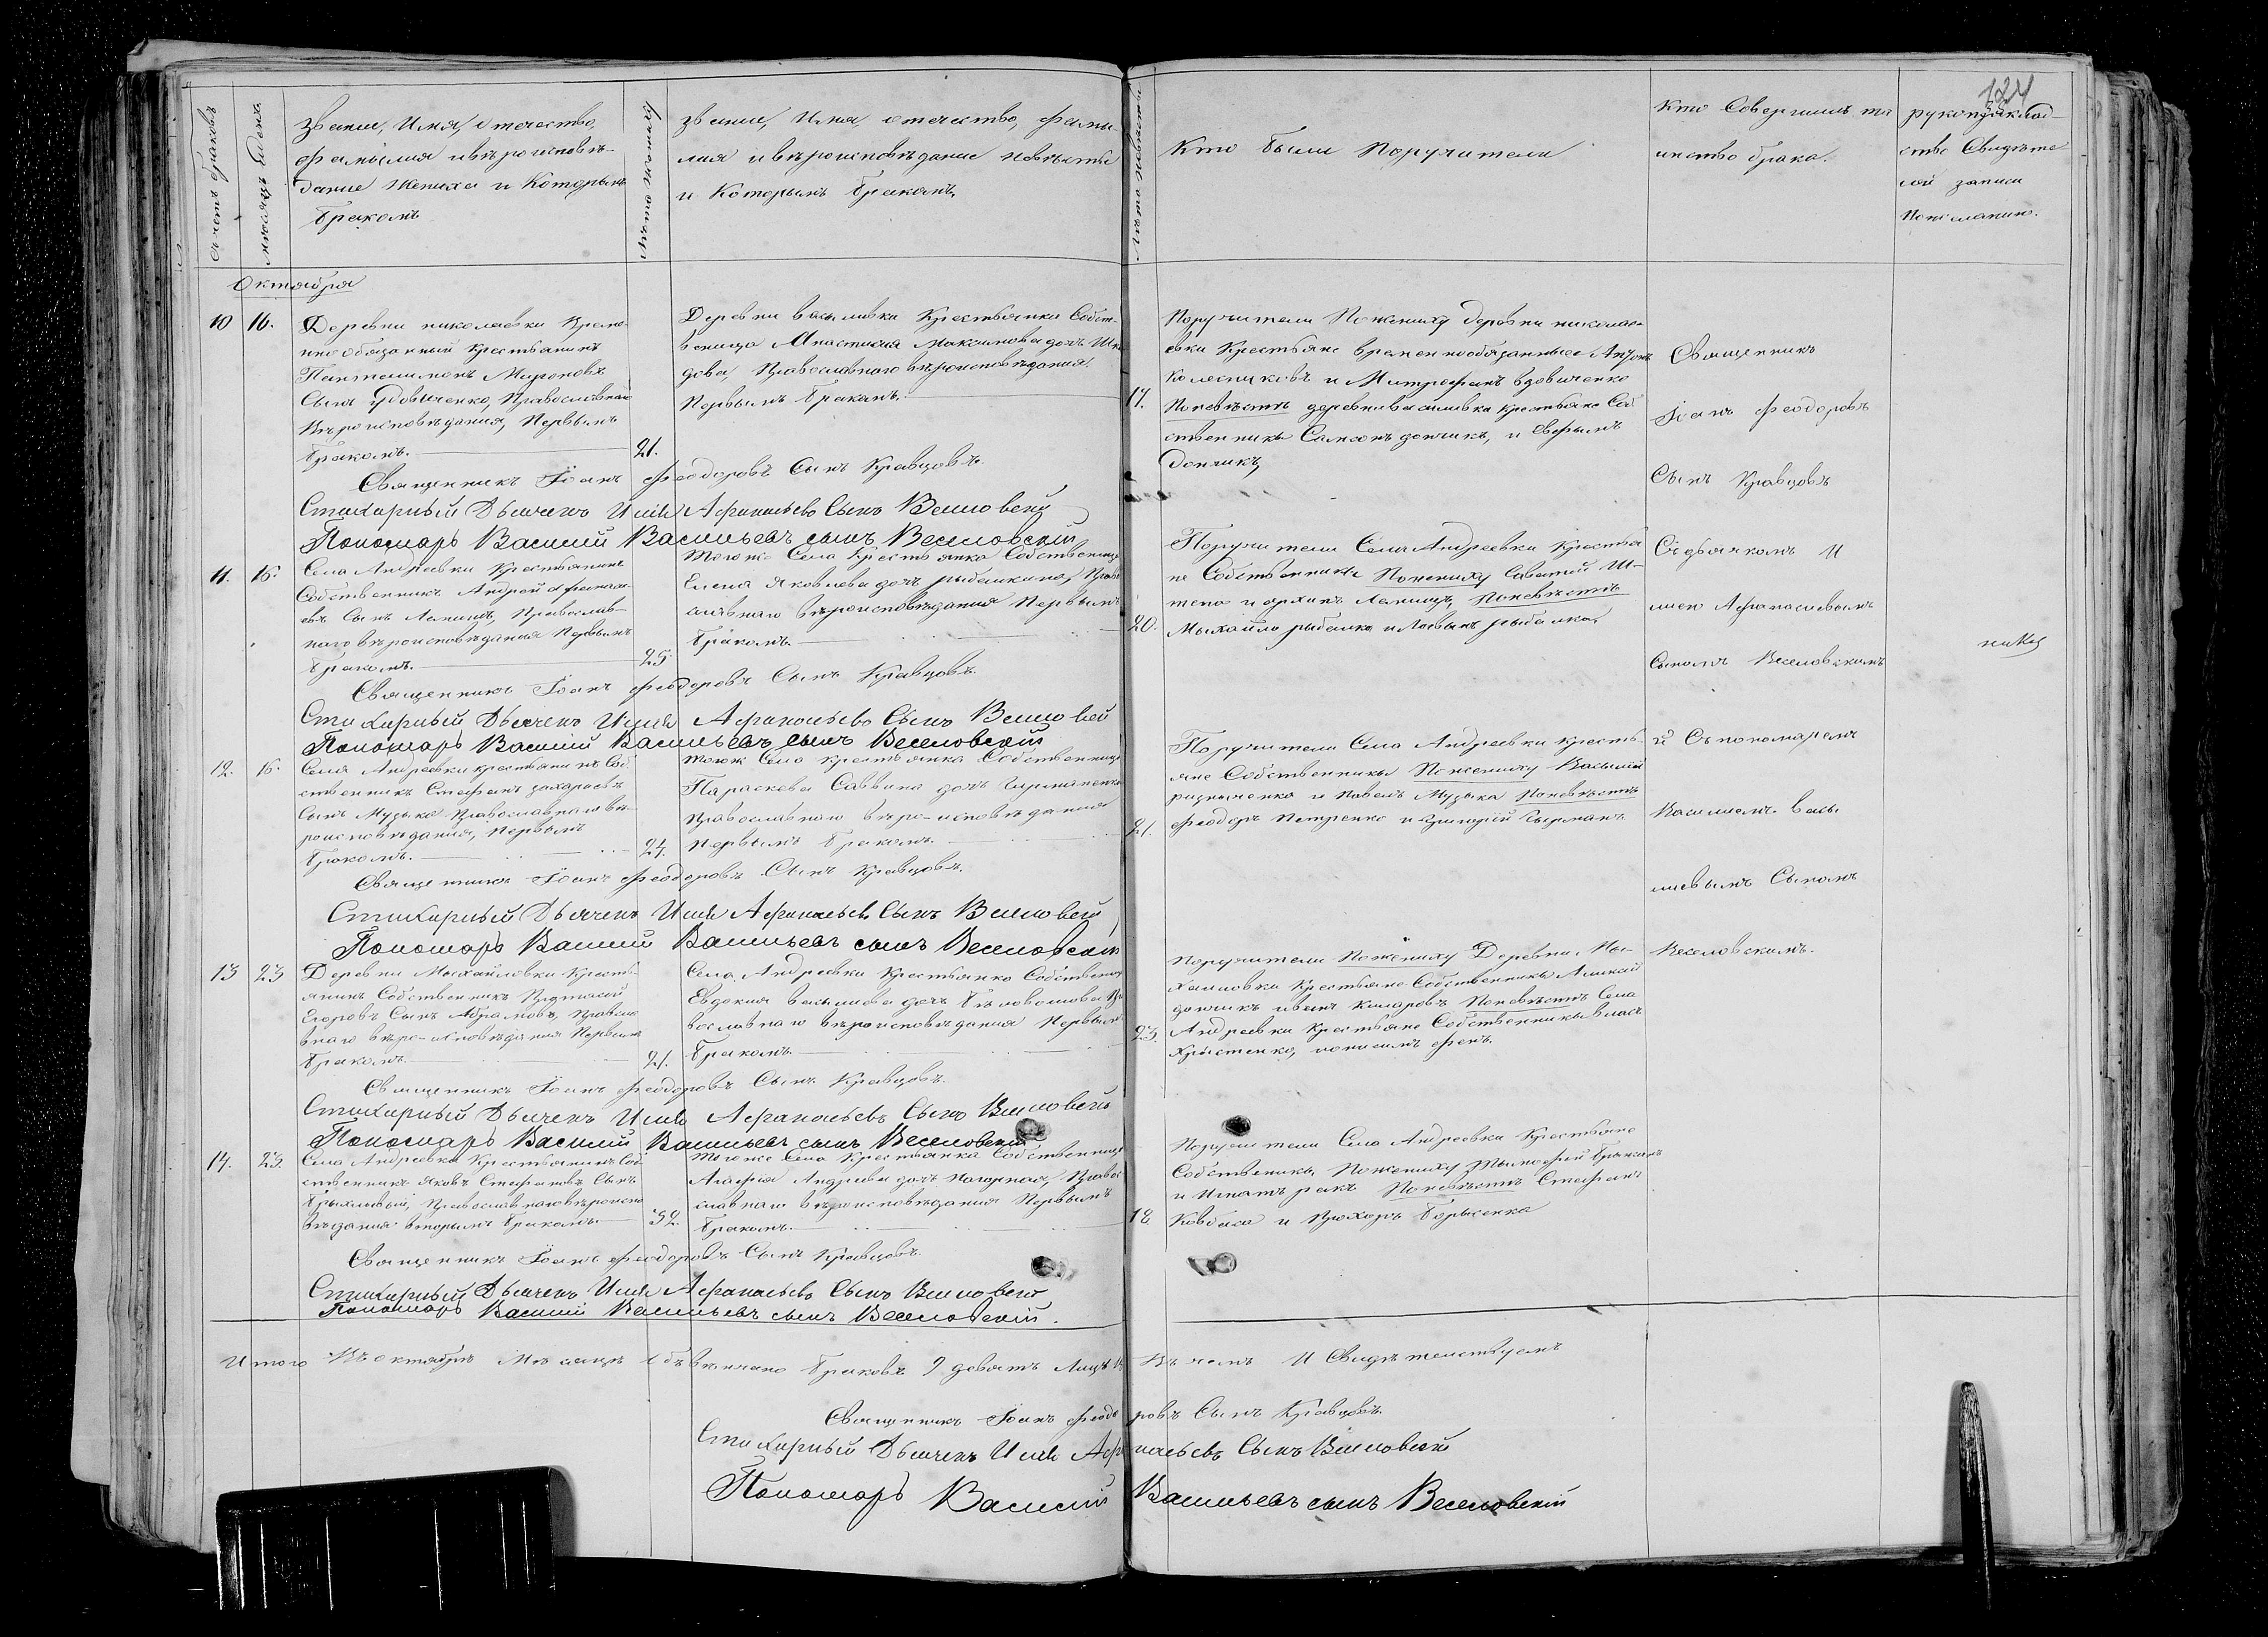 124
Счетъ браковъ
Мѣсяцъ и день
Званіе, Имя, отечество,
Фамилія и вѣроисповѣ-
даніе Жениха и Которымъ
Бракомъ
Лѣта Жениха
Званіе, Имя, отечество, Фами-
лія и вѣроисповѣданіе невѣсты
и Которымъ Бракомъ
Лѣта Невѣсты
Кто были Поручители
Кто Совершилъ та
инство брака.
рукоприклад-
ство Свидѣте
лей записи
По желанію.
Октября
10 16.
Деревни николаевки Време-
ннообязанный крестьянинъ
Пантелимонъ Мироновъ
Сынъ Удовиченко, Православнаго
Вѣроисповѣданія, Первымъ
бракомъ.
21.
Деревни василивки Крестьянка Собст-
веница Анастасия Максимова дочь
дова, Православнаго вѣроисповѣданія
Первымъ бракомъ.
17.
Поручители По жениху деревни никола-
евки Крестьяне временнообязанные Антонъ
Колесниковъ и Митрофанъ вдовиченко
По невѣстѣ деревни василивки крестьяне Соб
ственники Самсонъ дончикъ, и Ефимъ
Дончикъ
Священникъ Іоанъ Феодоровъ Сынъ Кравцовъ.
Стихарный Дьячекъ Илія Афанасьевъ Сынъ Веселовскій
Пономарь Василій Васильевъ сынъ Веселовскій
11. 16.
Села Андреевки Крестьянинъ
Собственникъ Андрей Афанась-
евъ Сынъ Православ-
наго вѣроисповѣданія Первымъ
бракомъ.
25
Того же Села Крестьянка Собственница
Елена Яковлева дочь рыбалкина, Право
славнаго вѣроисповѣданія Первымъ
бракомъ.
20.
Поручители Села Андреевки Крестья
не Собственники По жениху
и По невѣстѣ
Михайло рыбалка и рыбалка.
Священникъ Іоанъ Феодоровъ Сынъ Кравцовъ.
Стихарный Дьячекъ Илія Афанасьевъ Сынъ Веселовскій
Пономарь Василій Васильевъ сынъ Веселовскій
12. 16.
Села Андреевки крестьянинъ Соб
ственникъ Стефанъ захаровъ
Сынъ Музыка Православнаго вѣ-
роисповѣданія, Первымъ
бракомъ.
24.
Того ж Села крестьянка Собственница
Параскева Саввина дочь
Православнаго вѣро-исповѣданія
первымъ бракомъ.
21.
Поручители Села Андреевки крестья-
яне Собственники По жениху Василій
и Павелъ Музыка По невѣстѣ
Феодоръ Петренко и Григорій
Священникъ Іоанъ Феодоровъ Сынъ Кравцовъ.
Стихарный Дьячекъ Илія Афанасьевъ Сынъ Веселовскій
Пономарь Василій Васильевъ сынъ Веселовскій
13 23
Деревни Михайловки Кресть-
янинъ Собственникъ
Егоровъ Сынъ Абрамовъ, Правосла
внаго вѣро-исповѣданія Первымъ
бракомъ.
21.
Села Андреевки Крестьянка Собственница
Евдокия василиева дочь Пра
вославнаго вѣроисповѣданія Первымъ
бракомъ.
23.
Поручители По жениху Деревни Ми-
хайловки Крестьяне Собственники
дончикъ По невѣстѣ Села
Андреевки крестьяне Собственники власъ
Христенко,
Священникъ Іоанъ Феодоровъ Сынъ Кравцовъ.
Стихарный Дьячекъ Илія Афанасьевъ Сынъ Веселовскій
Пономарь Василій Васильевъ сынъ Веселовскій
14. 23.
Села Андреевки Крестьянинъ Соб
ственникъ Яковъ Стефановъ Сынъ
Православнаго вѣроиспо
вѣданія вторымъ бракомъ.
32.
Того же Села Крестьянка Собственница
Агафія Андриева дочь Нагорная, Право
славнаго вѣроисповѣданія Первымъ
бракомъ.
18
Поручители Села Андреевки Крестьяне
Собственники По жениху Тимофей
и Игнатъ ракъ По невѣстѣ Стефанъ
Ковбаса и Прохоръ Борисенко
Священникъ Іоанъ Феодоровъ Сынъ Кравцовъ.
Стихарный Дьячекъ Илія Афанасьевъ Сынъ Веселовскій
Пономарь Василій Васильевъ сынъ Веселовскій.
Священникъ
Іоанъ Феодоровъ
Сынъ Кравцовъ
Съ дьячкомъ И
лиею Афанасиевымъ
Сыномъ Веселовскимъ
и Съ пономаремъ
Василиемъ васи
лиевымъ Сыномъ
Веселовскимъ.
Итого Въ октябрѣ Мѣсяцѣ обвѣнчано браковъ 9 девять
Въ чемъ И Свидѣтельствуемъ
Священникъ Іоанъ Феодоровъ Сынъ Кравцовъ.
Стихарный Дьячекъ Илія Афанасьевъ Сынъ Веселовскій
Пономарь Василій Васильевъ сынъ Веселовскій